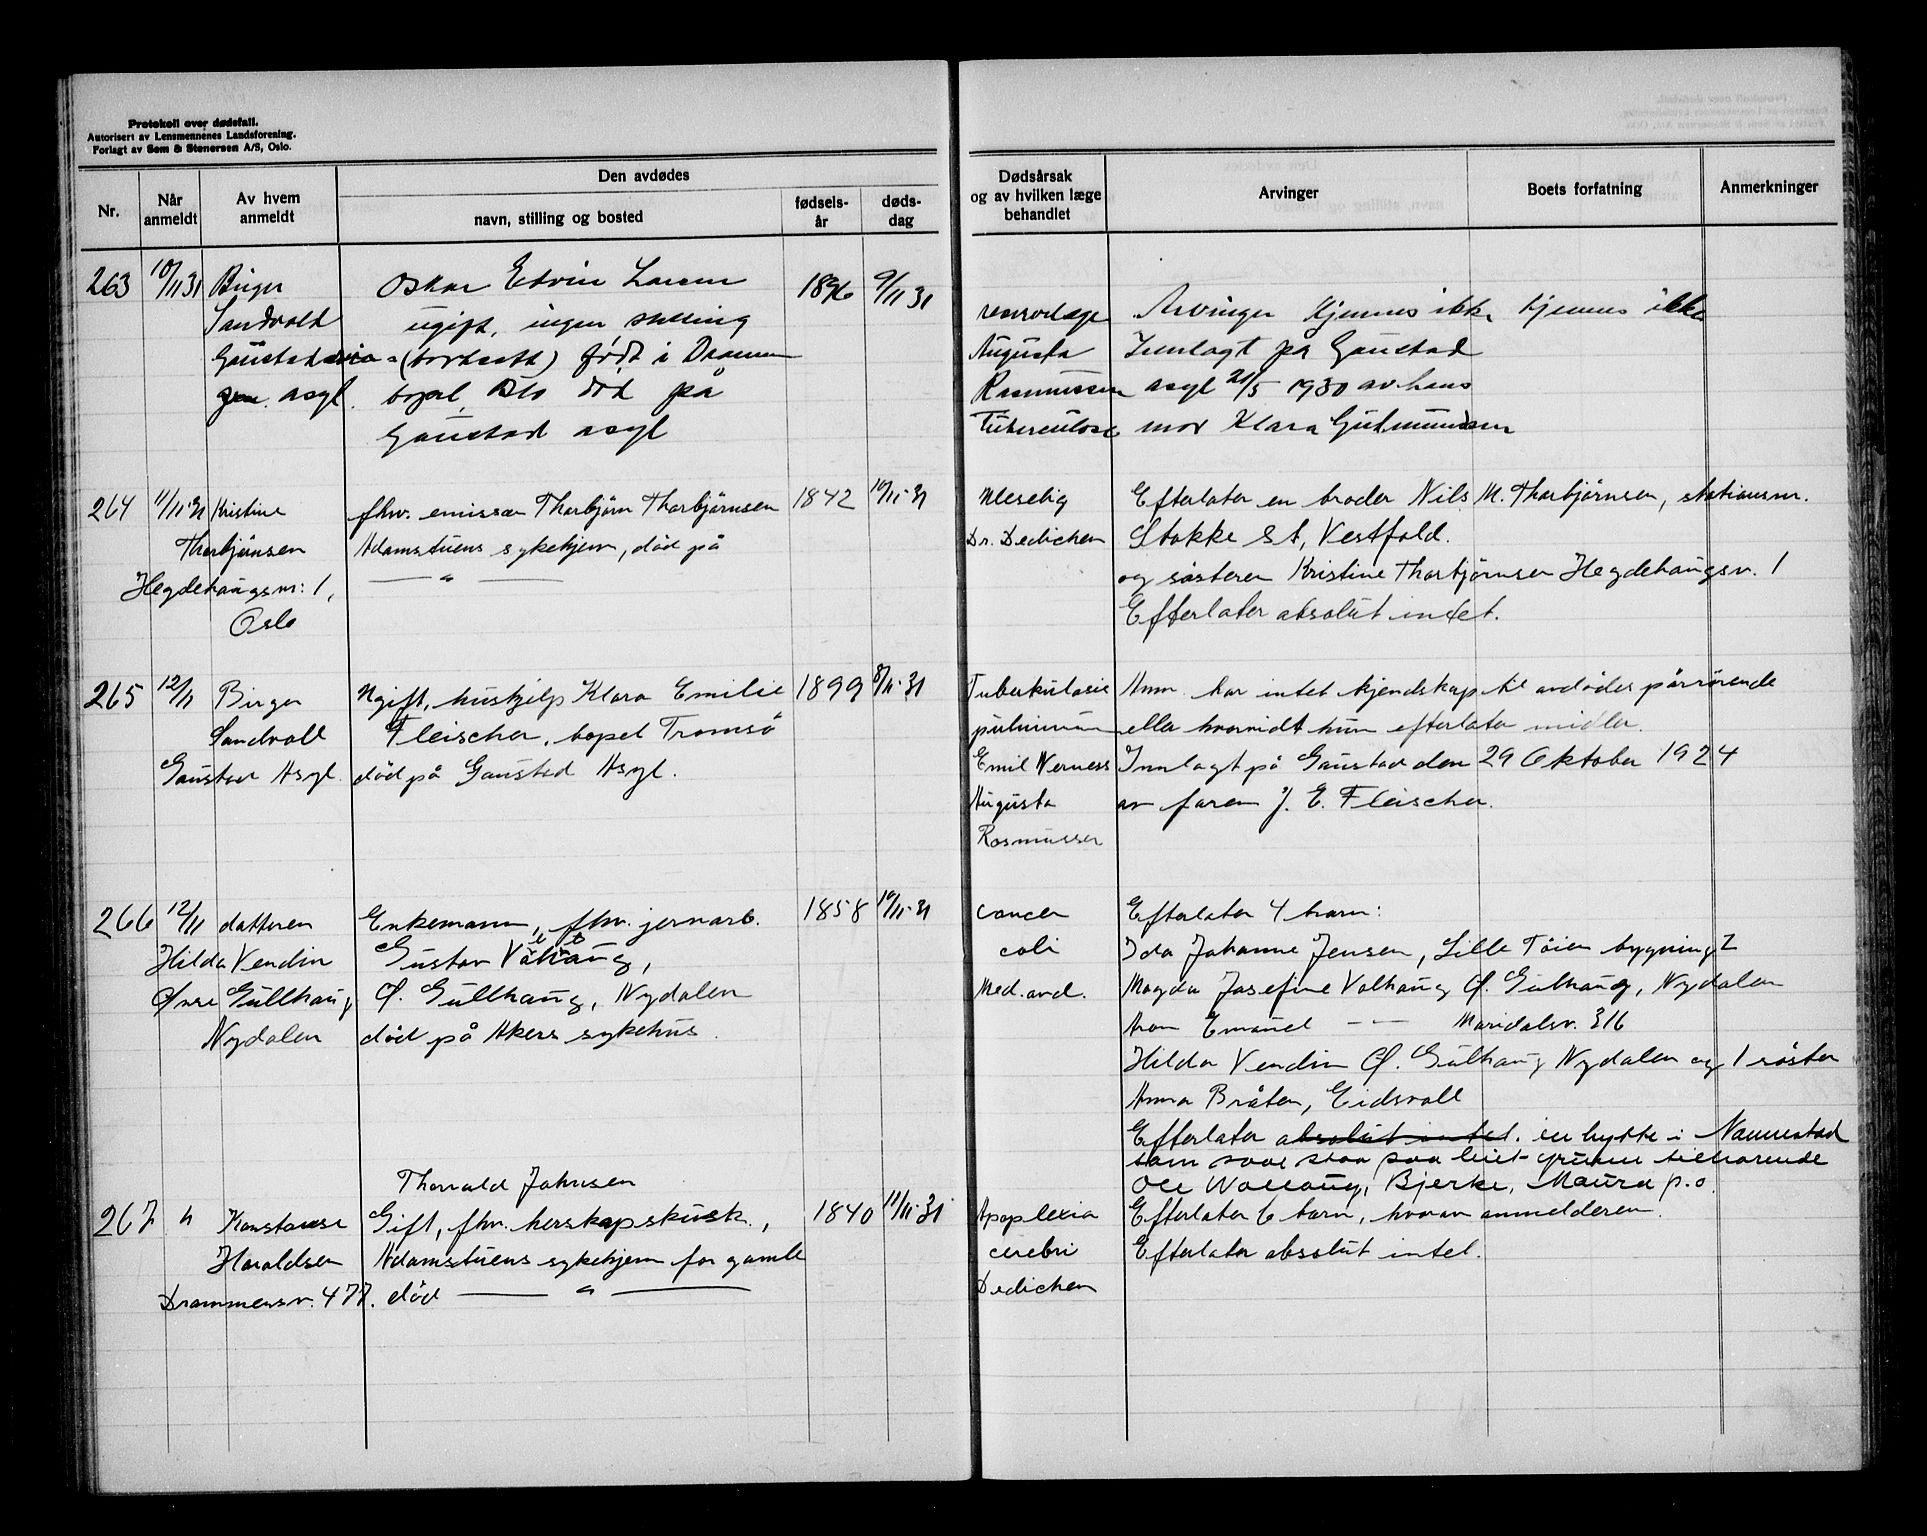 Protokoll over dødsfall.
Autorisert av Lensmennenes Landsforening.
Forlagt av Sem & Stenersen A/S, Oslo.
Nr.
Når anmeldt
Av hvem anmeldt
Den avdødes
navn, stilling og bosted
fødsels-år
døds-dag
Dødsårsak og av hvilken læge behandlet
Arvinger
Boets forfatning
Anmerkninger
263 10/11 31 Birger Oskar Edvin Larsen 1896 9/11 31
Sandvold ugift, ingen stilling
Gaustad (bortsett) født i Drammen
asyl. bopel Oslo død på
Gaustad asyl
reservelæge Arvinger kjennes ikke kjennes ikke
Augusta Innlagt på Gaustad
Rasmussen asyl 21/5 1930 av hans
Tuberculose mor Klara Gudmundsen
264 11/11-31 Kristine fhv. emissær Thorbjørn Thorbjørnsen 1842 10/11-31
Thorbjörnsen Adamstuens sykehjem, död på
Hegdehaugsv: 1, — " —
Oslo
Dr. Dedichen
Efterlater en broder Nils M. Thorbjörnsen, stationsm.
Stokke St, Vestfold.
og søsteren Kristine Thorbjörnsen Hegdehaugsv. 1
Efterlater absolut intet.
265 12/11 Birger Ugift, hushjelp Klara Emilie 1899 8/11-31
Sandvoll Fleischer, bopel Tromsö
Gaustad Asyl. död på Gaustad Asyl.
Tuberkulosis Anm. har intet kjendskap til avdödes pårörende
pulmonum eller hvorvidt hun efterlater midler.
Emil Werness Innlagt på Gaustad den 29 Oktober 1924
Augusta av faren J. E. Fleischer.
Rasmussen
266 12/11 datteren Enkemann, fhv. jernarb. 1858 10/11-31
Hilda Vendin Gustav Valhaug,
Övre Gullhaug Ö. Gullhaug, Nydalen
Nydalen död på Akers sykehus.
cancer Efterlater 4 barn:
coli Ida Johanne Jensen, Lille Töien bygning 2
Med. avd. Magda Josefine Valhaug Ö. Gulhaug, Nydalen
Aron Emanuel — " — Maridalsv. 316
Hilda Vendin Ö. Gulhaug Nydalen og 1 söster
Anna Bråten, Eidsvoll
Efterlater absolut intet. en hytte i Nannestad
som staa paa leiet grunn tilhörende
Ole Wolhaug, Bjerke, Maura p.o.
Thorvald Johnsen
267 " Konstanse Gift, fhv. herskapskusk, 1840 11/11-31
Haraldsen Adamstuens sykehjem for gamle
Drammensv. 477. död — " —
Apoplexia Efterlater 6 barn, hvorav anmelderen.
cerebri Efterlater absolut intet.
Dedichen